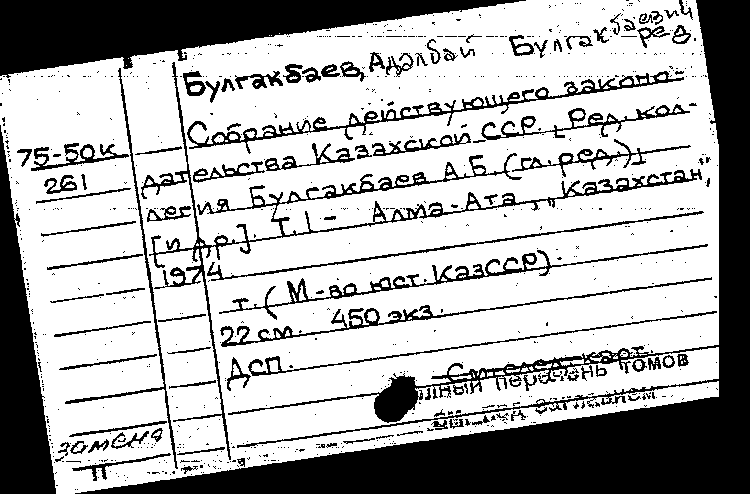 Булгакбаев, Адалбай Булгакбаевич
ред.
Собрание действующего законо-
75-50к
261
дательства Казахской ССР. Ред. кол-
легия Булгакбаев А.Б. (гл. ред.),
[и др.]. Т. 1 - Алма-Ата, „Казахстан",
1974
т. (М-во юст. КазССР).
22 см. 450 экз.
Дсп.
См. след. карт.
перечень томов
под заглавием
замена
П